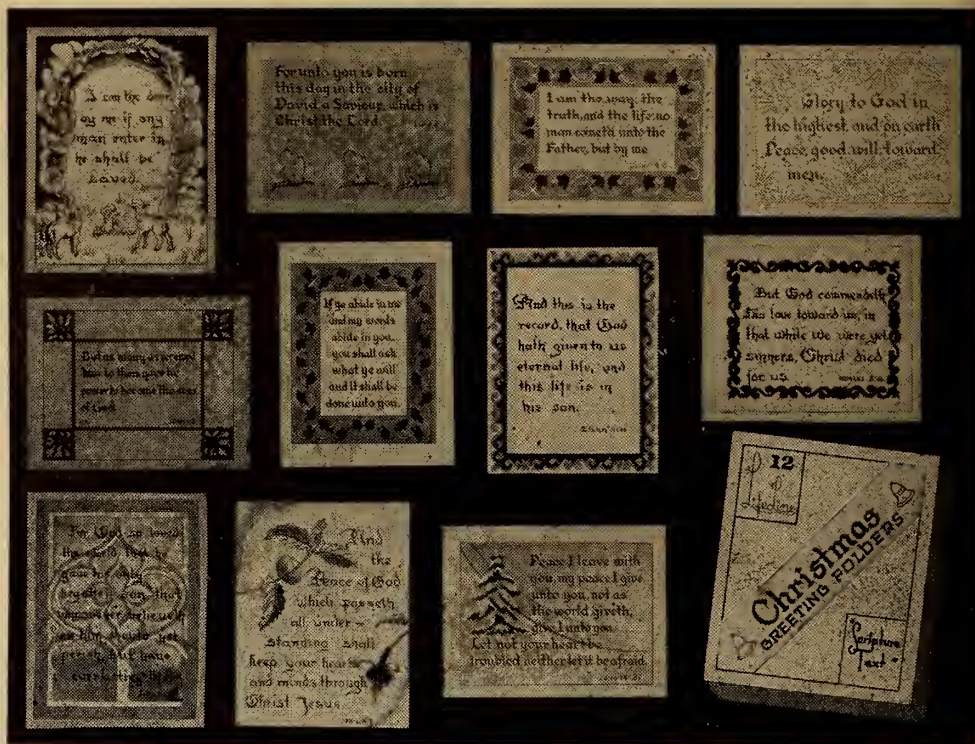 I am the door
by me if any
man enter in
he shall be
saved.
For unto you is born
this day in the city of
David a Saviour, which is
Christ the Lord
I am the way, the
truth, and the life: no
man cometh unto the
Father, but by me
Glory to God in
the highest, and on earth
Peace, good will, toward
men.
But as many as received
him to them gave he
power to become the sons
of God
If ye abide in me
and my words
abide in you,
you shall ask
what ye will
and it shall be
done unto you.
And this is the
record, that God
hath given to us
eternal life, and
this life is in
his son.
But God commendeth
his love toward us, in
that while we were yet
sinners, Christ died
for us.
For God so loved
the world, that he
gave his only
begotten Son that
whosoever believeth
on him should not
perish, but have
everlasting life
And
the
Peace of God
which passeth
all under-
standing shall
keep your hearts
and minds through
Christ Jesus
Peace I leave with
you, my peace I give
unto you, not as
the world giveth,
give I unto you
Let not your heart be
troubled neither let it be afraid
12
Lifeline
Christmas
GREETING FOLDERS
"Scripture
Text"